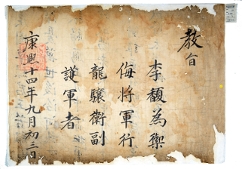 教旨
李馥為禦
侮將軍行
龍驤衛副
護軍者
康熙十四年九月初三日